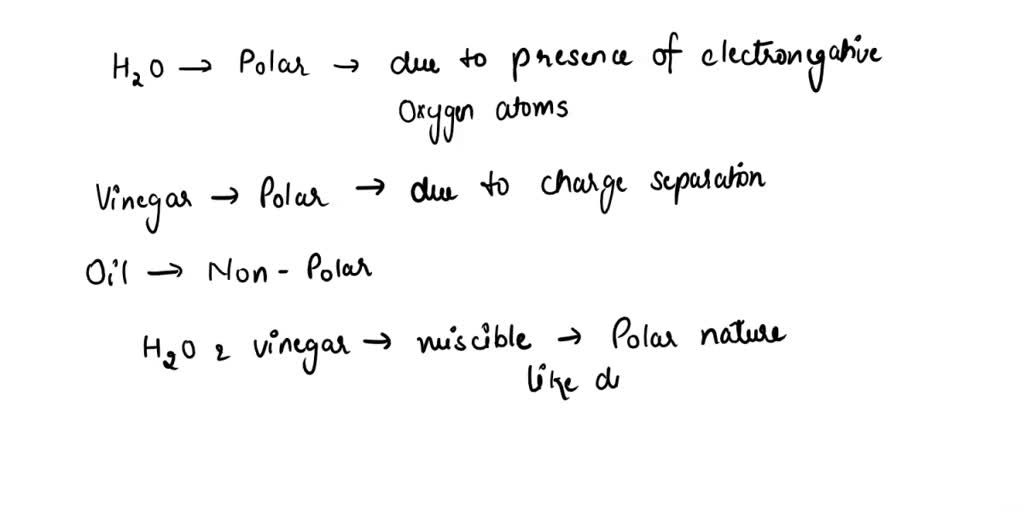 H₂O → Polar → due to presence of electronegative
Oxygen atoms
Vinegar → Polar → due to charge separation
Oil → Non - Polar
H₂O & vinegar → miscible → Polar nature
like d